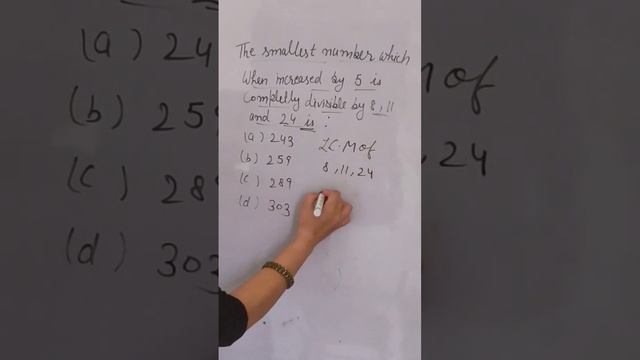 The smallest number which
when increased by 5 is
completly divisible by 8, 11
and 24 is :
(a) 243
(b) 259
(c) 289
(d) 303
L.C.M of
8, 11, 24